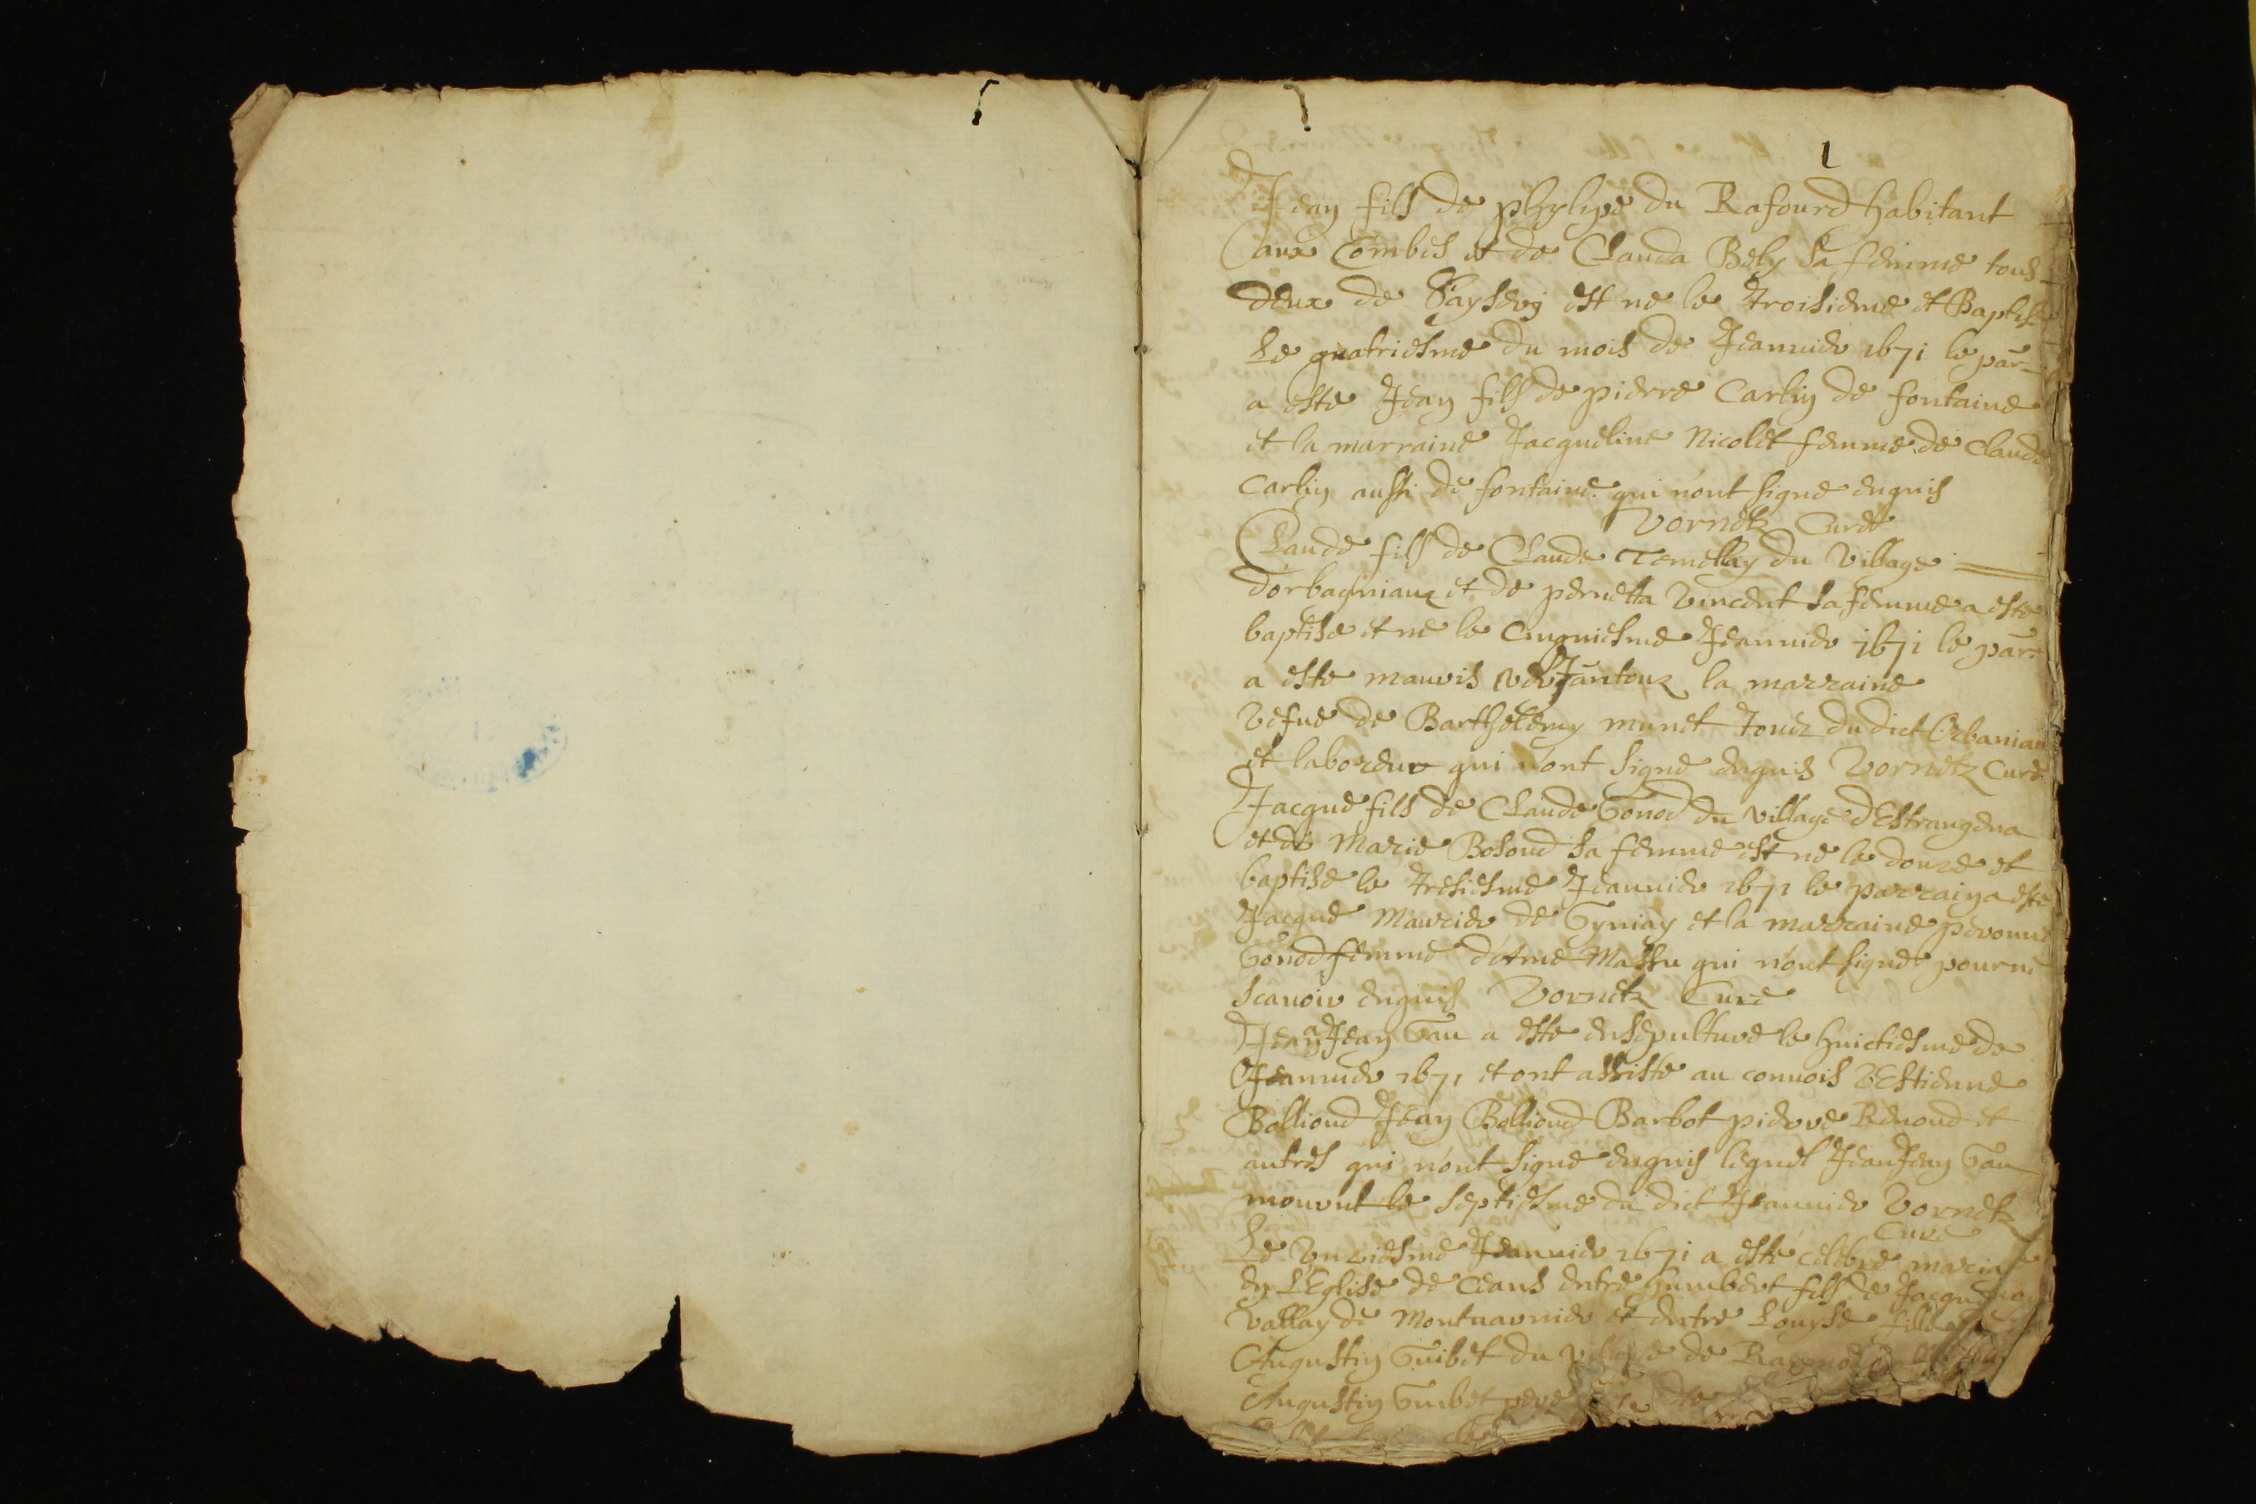 1
Jean fils de phylype du Rafourd habitant
aux Combes et de Clauda Bely sa femme tous
deux de est ne le troisieme et Baptise
Le quatriesme du mois de Jeanvier 1671 le par-
a este Jean fils de pierre Carlin de fontaine
et la marraine Jacqueline Nicolet femme de Claude
Carlin aussi de fontaine qui n'ont signe enquis
Vornetz Curé
Claude fils de Claude Temellay du village
dorbagniaux et de pernetta Vincent sa femme a este
baptise et ne le Cinquiesme Jeanvier 1671 le par-
a este mauris la marraine
Vefue de Barthelemy munet touz du dict Orbaniau
et laboreur qui n'ont signe enquis Vornetz Curé
Jacque fils de Claude Gonod du village dEstrangena
et de Marie Bosoud sa femme est ne le douze et
baptise le tresiesme Jeanvier 1671 le parrain a este
Jacque Maurier de Gyniay et la marraine peronne
Gonod femme d'Ame Massu qui n'ont signe pour ne
scauoir enquis Vornetz Curé
Jean Jean Gau a este ensepulture le huictiesme de
Jeanvier 1671 et ont assiste au conuois Estienne
Bollioud Jean Bollioud Barbot pierre Renoud et
autres qui n'ont signe enquis lequel Jean Jean Gau
mourut le septiesme du dict Jeanvier Vornetz
Curé
Le Vnziesme Jeanvier 1671 a este celebre mariage
en L'Eglise de Ceans entre humbert fils de Jacque
Vallay de Montuarnier et entre Louyse fille
Augustin Guibet du village de
Augustin Guibet pere